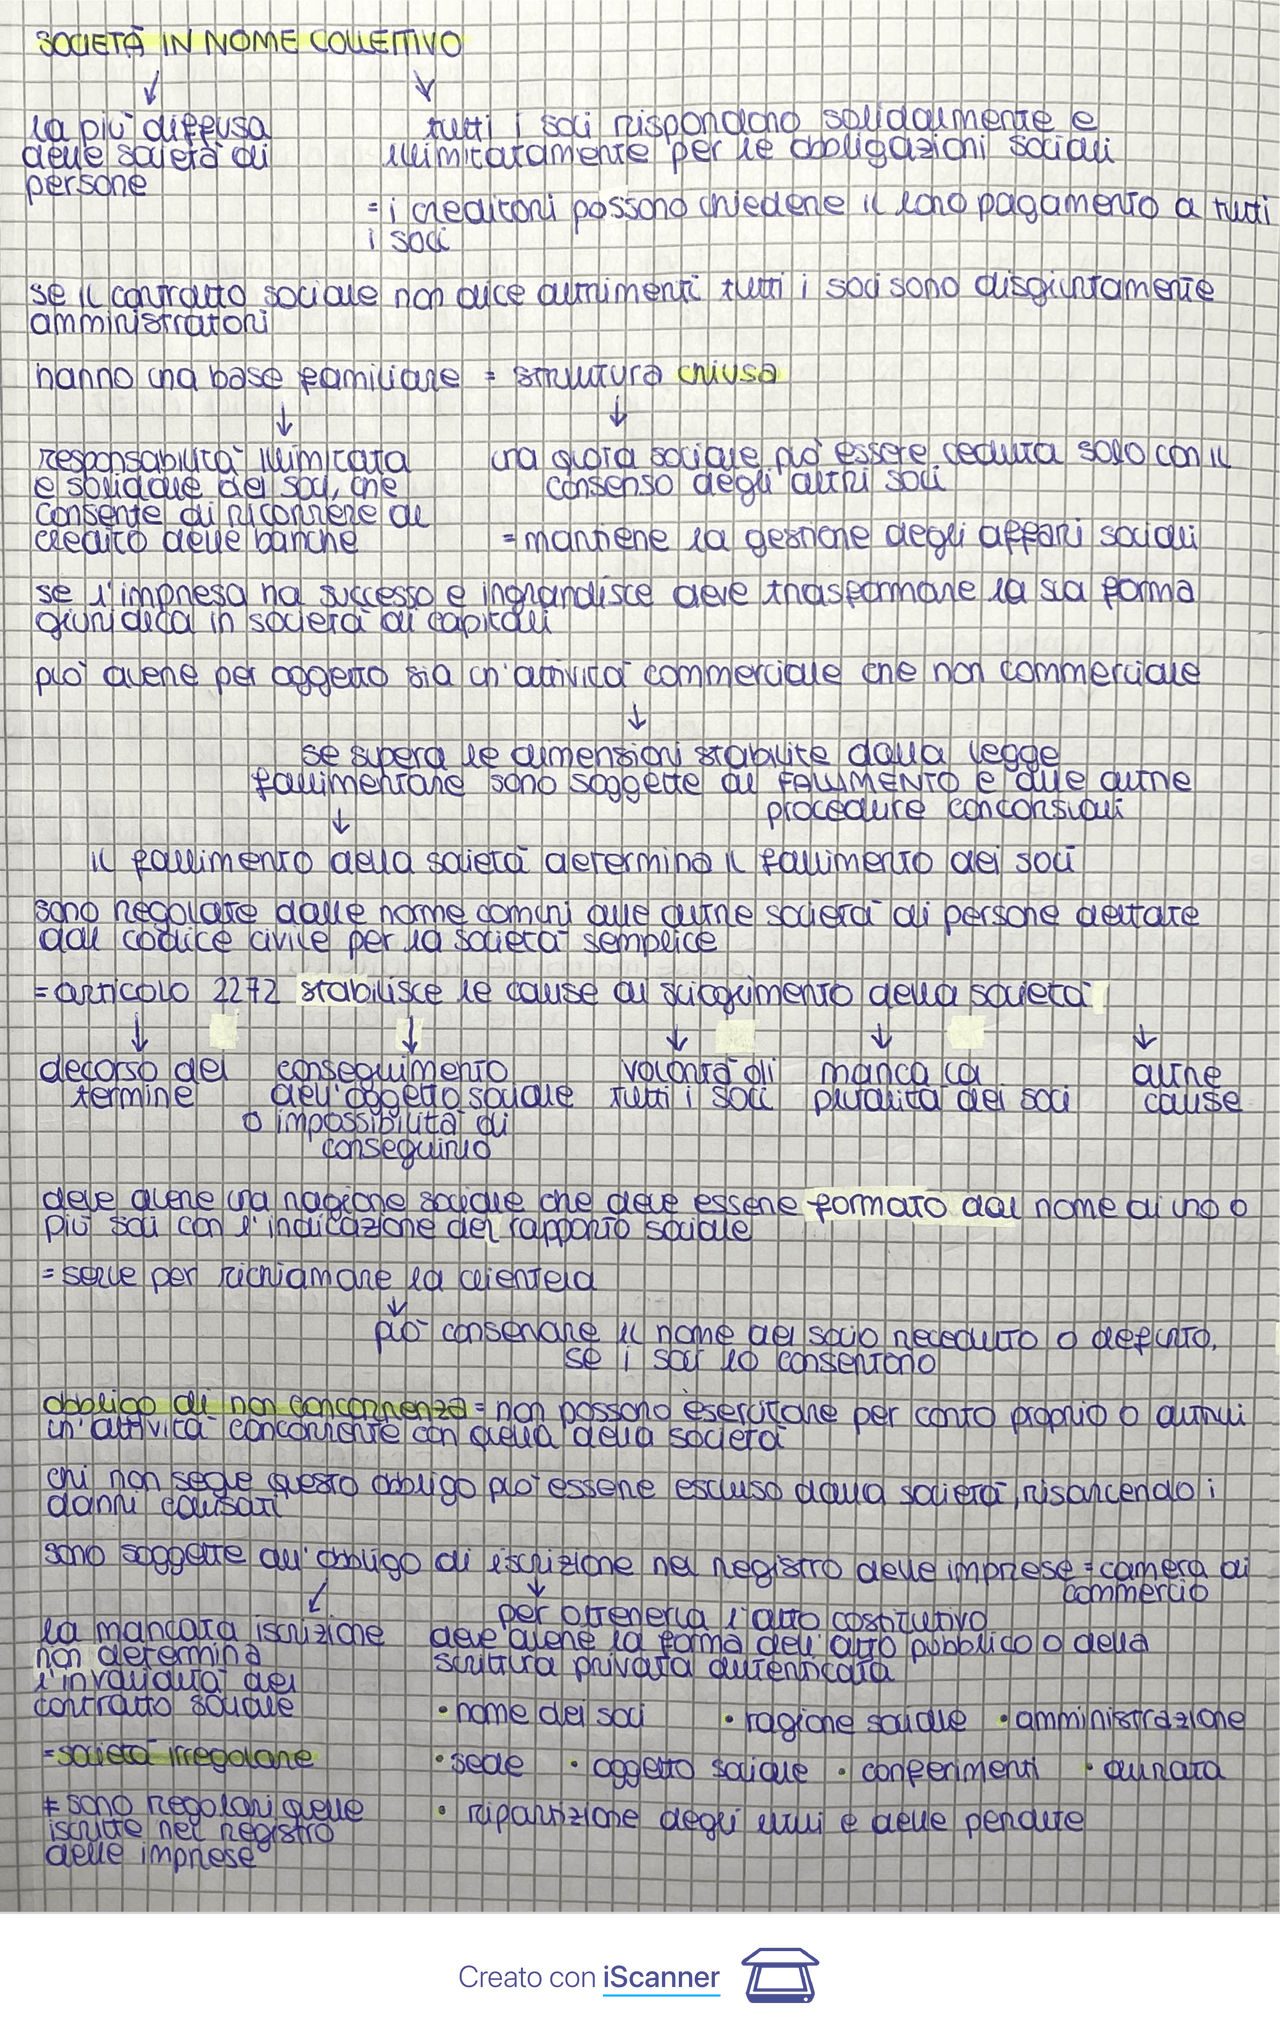 SOCIETÀ IN NOME COLLETTIVO
la più diffusa
delle società di
persone
tutti i soci rispondono solidalmente e
illimitatamente per le obbligazioni sociali
= i creditori possono chiedere il loro pagamento a tutti
i soci
se il contratto sociale non dice altrimenti tutti i soci sono disgiuntamente
amministratori
hanno una base familiare = struttura chiusa
responsabilità illimitata
e solidale dei soci, che
consente di ricorrere al
credito delle banche
una quota sociale può essere ceduta solo con il
consenso degli altri soci
= mantiene la gestione degli affari sociali
se l'impresa ha successo e ingrandisce deve trasformare la sua forma
giuridica in società di capitali
può avere per oggetto sia un'attività commerciale che non commerciale
se supera le dimensioni stabilite dalla legge
fallimentare sono soggette al FALLIMENTO e alle altre
procedure concorsuali
il fallimento della società determina il fallimento dei soci
sono regolate dalle norme comuni alle altre società di persone dettate
dal codice civile per la società semplice
= articolo 2272 stabilisce le cause di scioglimento della società
decorso del
termine
conseguimento
dell'oggetto sociale
o impossibilità di
conseguirlo
volontà di
tutti i soci
manca la
pluralità dei soci
altre
cause
deve avere una ragione sociale che deve essere formato dal nome di uno o
più soci con l'indicazione del rapporto sociale
= serve per richiamare la clientela
può conservare il nome del socio receduto o defunto,
se i soci lo consentono
obbligo di non concorrenza = non possono esercitare per conto proprio o altrui
un'attività concorrente con quella della società
chi non segue questo obbligo può essere escluso dalla società, risarcendo i
danni causati
sono soggette all'obbligo di iscrizione nel registro delle imprese = camera di
commercio
la mancata iscrizione
non determina
l'invalidità del
contratto sociale
= società irregolare
≠ sono regolari quelle
iscritte nel registro
delle imprese
per ottenerla l'atto costitutivo
deve avere la forma dell'atto pubblico o della
scrittura privata autenticata
• nome dei soci • ragione sociale • amministrazione
• sede • oggetto sociale • conferimenti • durata
• ripartizione degli utili e delle perdite
Creato con iScanner